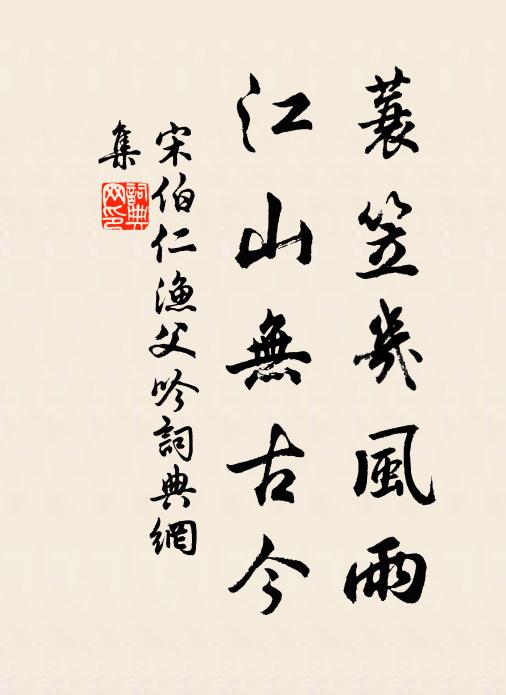 蓑笠幾風雨
江山無古今
宋伯仁漁父吟詞典網
集
詞典
网印